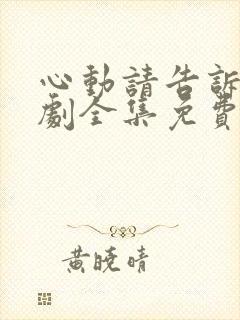 心動請告訴
劇全集免費
黃曉晴